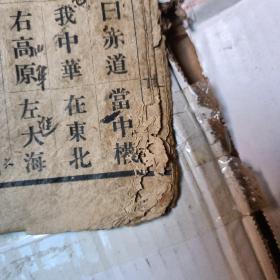 曰赤道 當中權
我中華 在東北
右高原 左大海